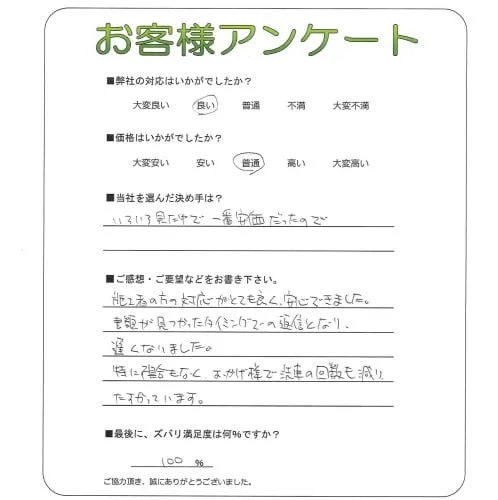 お客様アンケート
■弊社の対応はいかがでしたか？
大変良い 良い 普通 不満 大変不満
■価格はいかがでしたか？
大変安い 安い 普通 高い 大変高い
■当社を選んだ決め手は？
いろいろ見た中で一番安価だったので
■ご感想・ご要望などをお書き下さい。
施工者の方の対応がとても良く、安心できました。
が見つかったタイミングでの返信となり、
遅くなりました。
特に陽合もなく、おかげ様で洗車の回数も減り、
たすかっています。
■最後に、ズバリ満足度は何%ですか？
100 %
ご協力頂き、誠にありがとうございました。